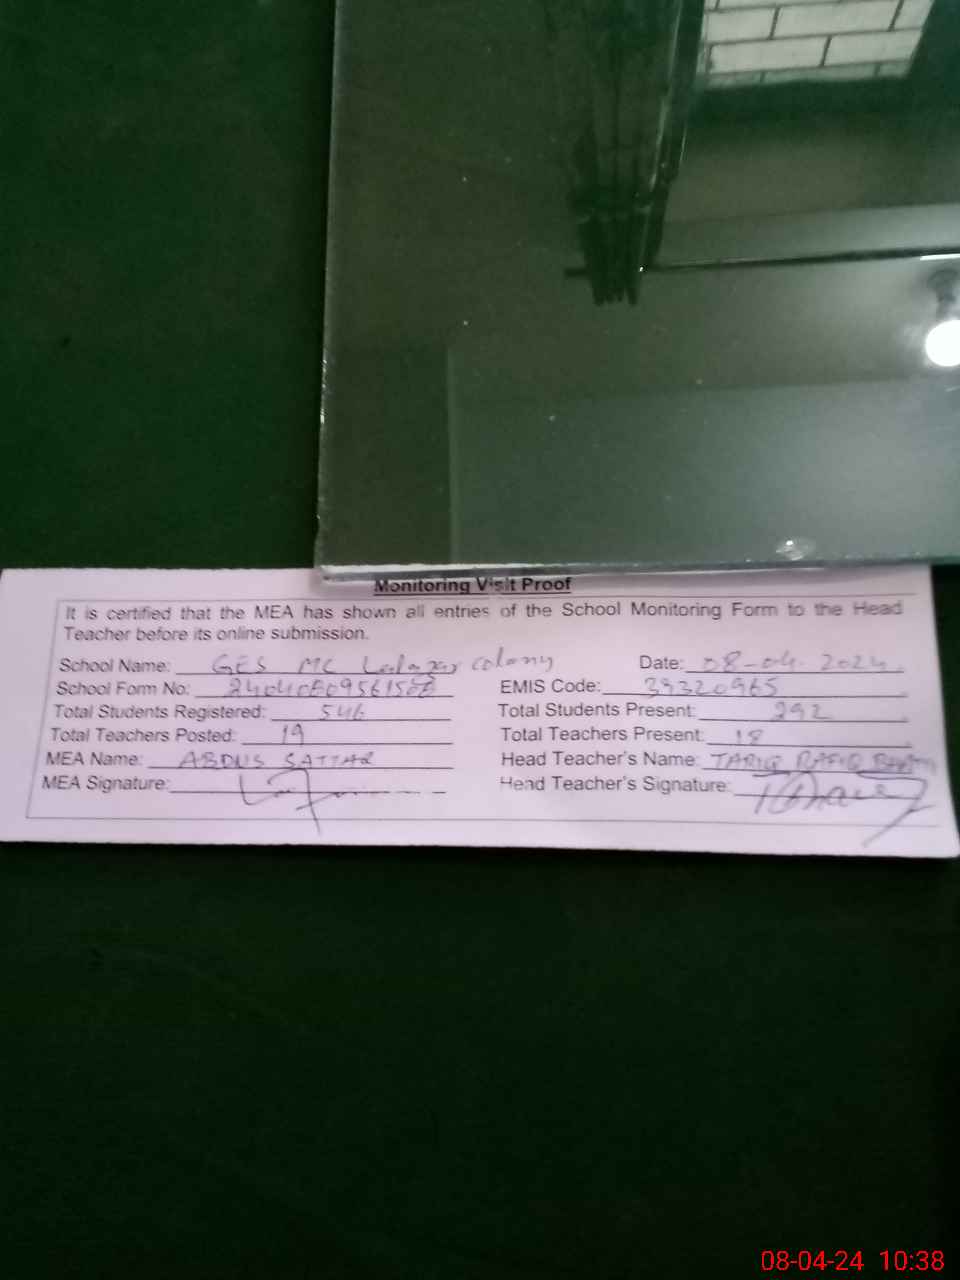 Monitoring Visit Proof
It is certified that the MEA has shown all entries of the School Monitoring Form to the Head
Teacher before its online submission.
School Name: GES MC Lalazar colony Date: 08-04-2024
School Form No: EMIS Code: 39320965
Total Students Registered: 546 Total Students Present: 292
Total Teachers Posted: 19 Total Teachers Present: 18
MEA Name: ABDUS SATTAR Head Teacher's Name: TARIQ RAFIQ
MEA Signature: Head Teacher's Signature:
08-04-24 10:38